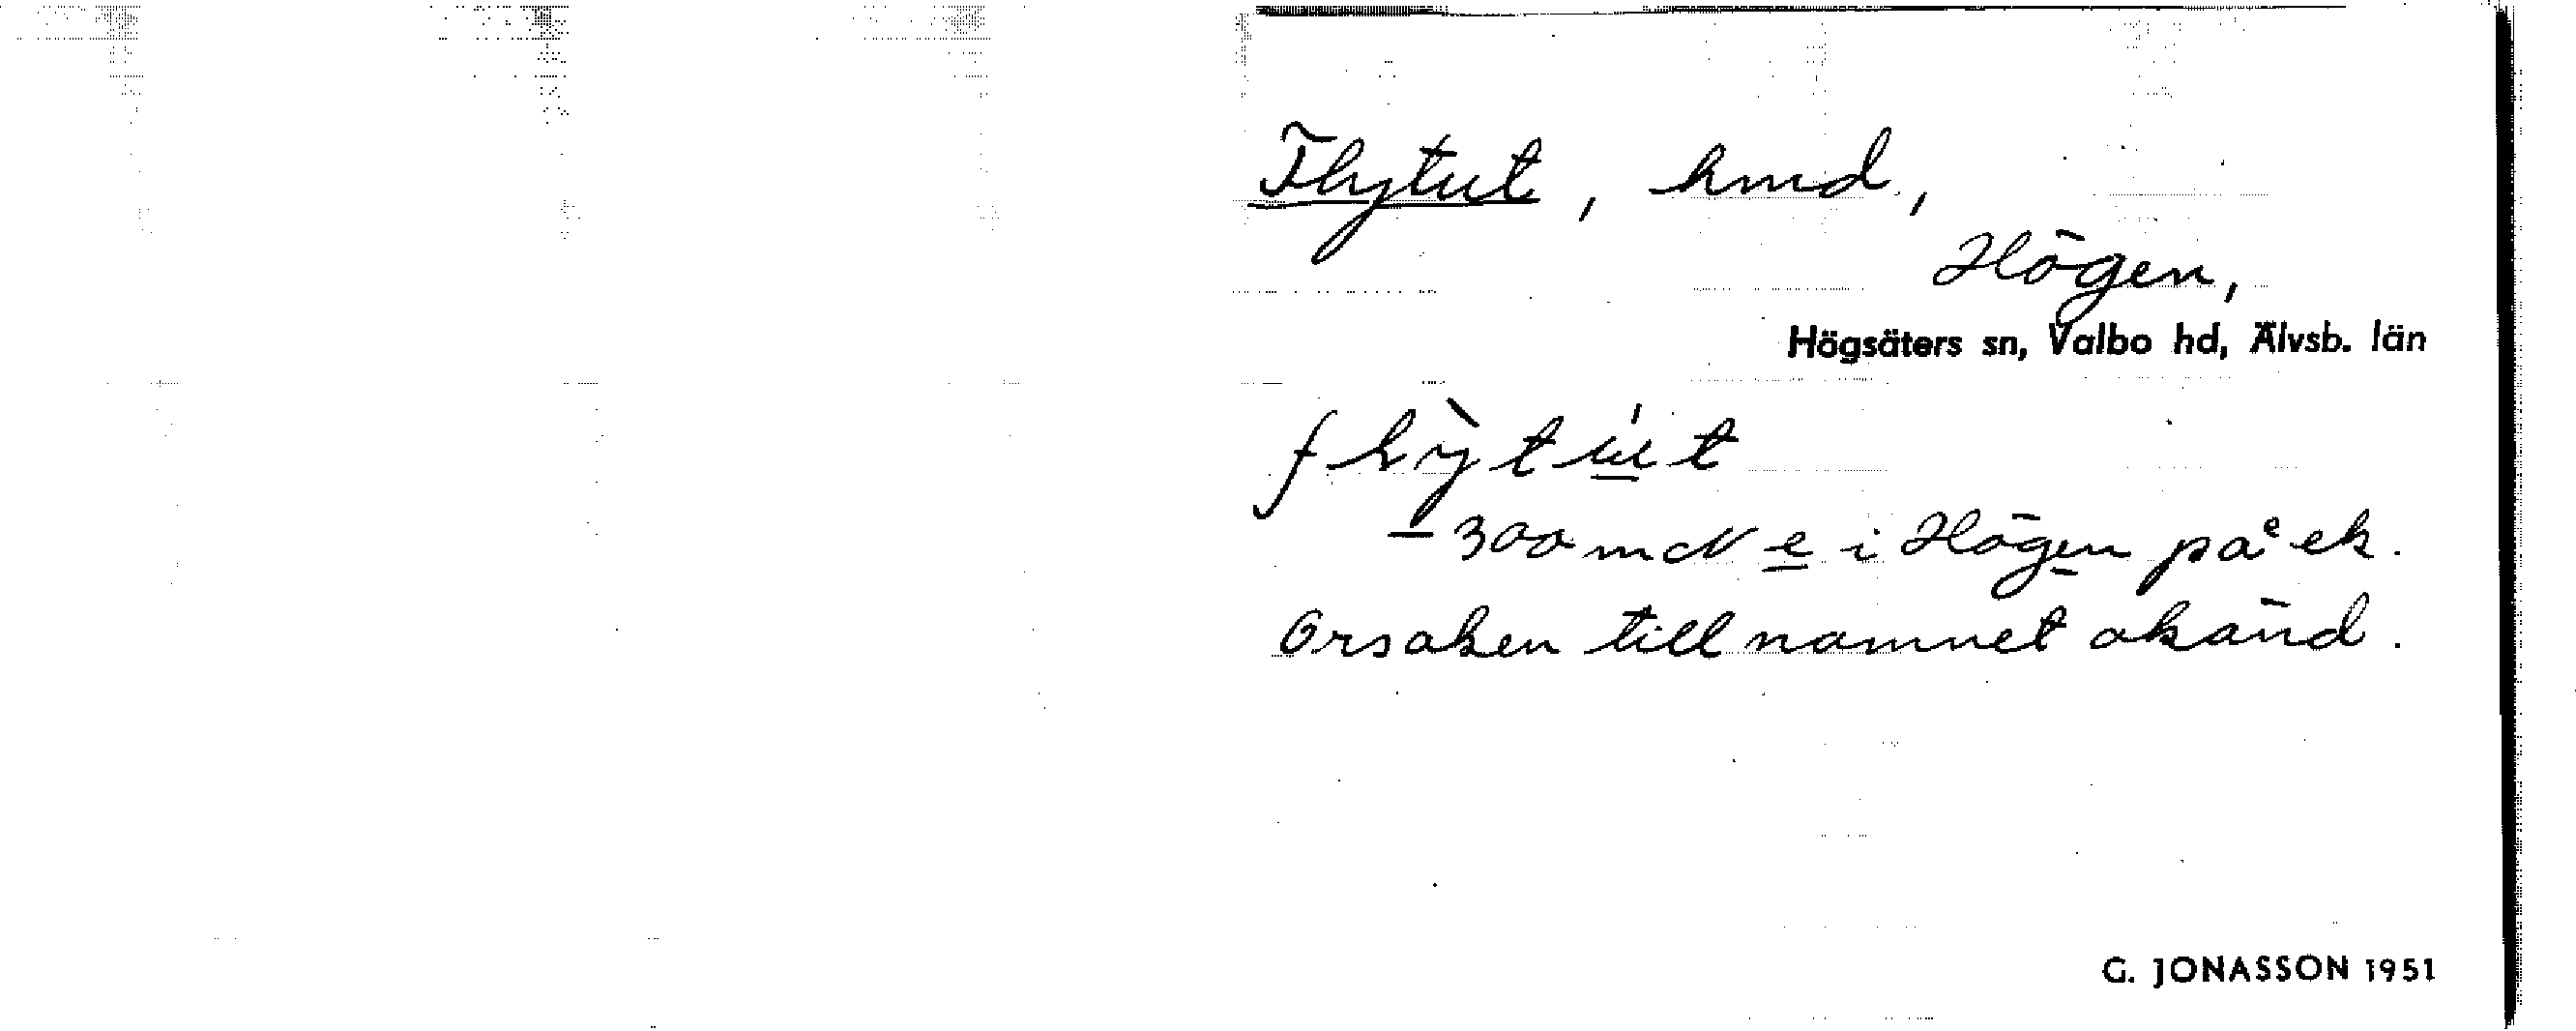 Flytut, hmd,
Högen,
Högsäters sn, Valbo hd, Älvsb. län
flỳtút
— 300 m N e i Högen på ek.
Orsaken till namnet okänd.
G. JONASSON 1951